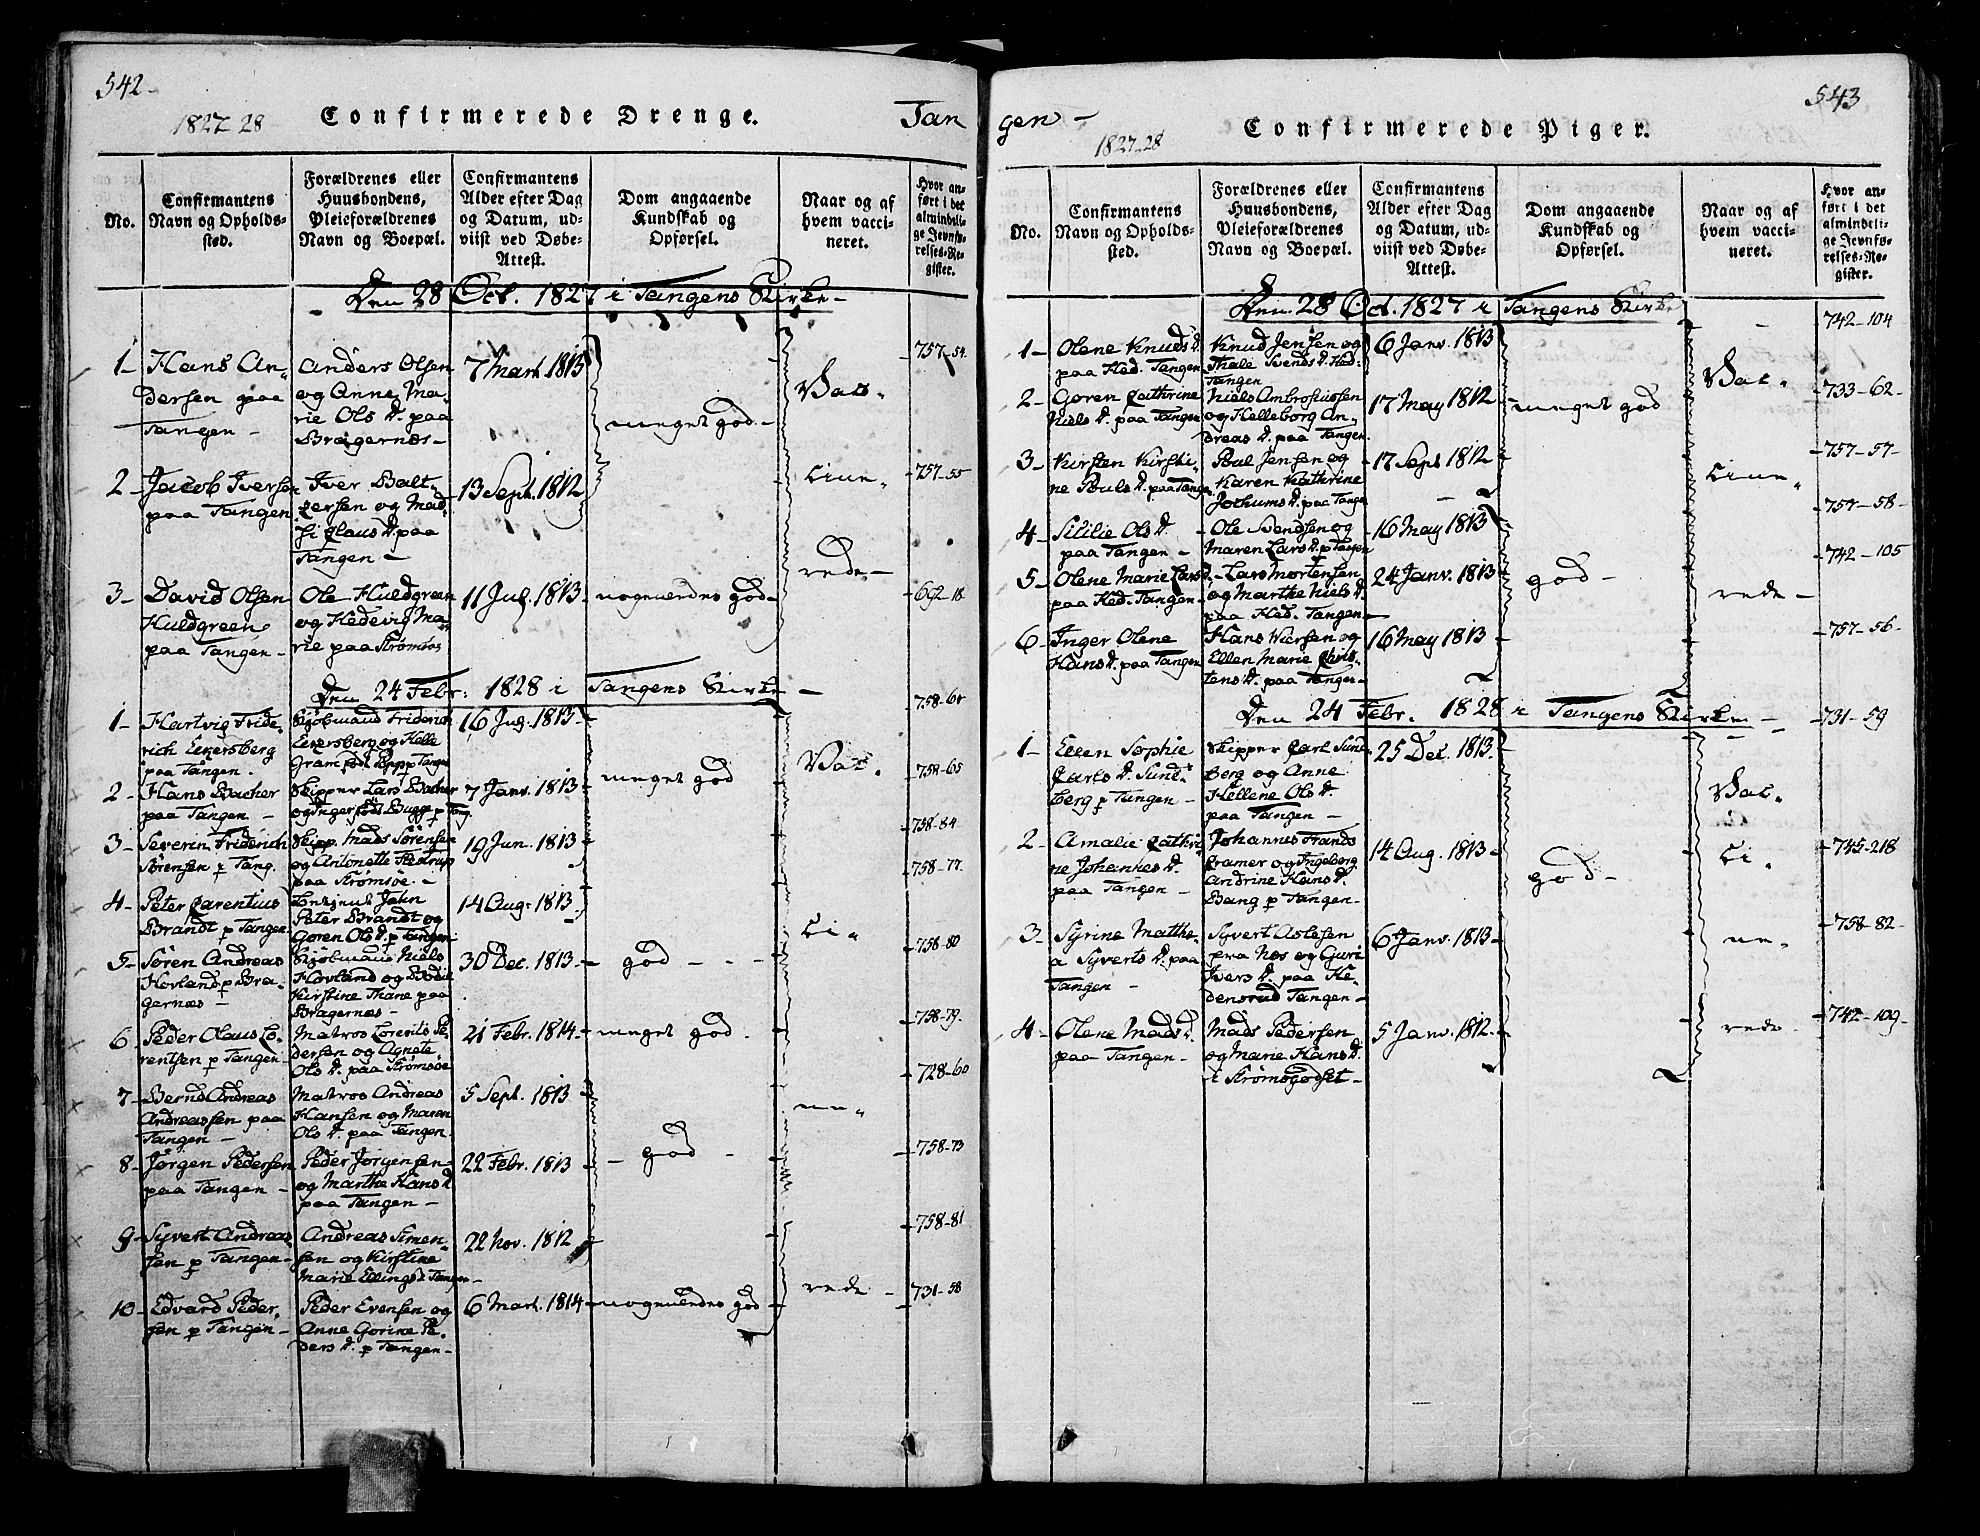 542-
1827-28
Confirmerede Drenge.
Tan
No.
Confirmantens
Navn og Opholds-
sted.
Forældrenes eller
Huusbondens,
Pleieforældrenes
Navn og Boepæl.
Confirmantens
Alder efter Dag
og Datum, ud-
viist ved Døbe-
Attest.
Dom angaaende
Kundskab og
Opførsel.
Naar og af
hvem vacci-
neret.
Hvor an-
ført i det
almindeli-
ge Jevnfø-
relses-Re-
gister.
Den 28 Oct. 1827 i Tangens Kirke-
1- Hans An-
dersen paa
Tangen-
Anders Olsen
og Anne Ma-
rie Ols D. paa
Bragernæs-
7 Mart. 1813
meget god-
757-54.
2- Jacob Iversen
paa Tangen
Iver Balt-
zersen og Mad-
si Claus D. paa
Tangen-
13 Sept. 1812
757-55
3- David Olsen
Huldgreen
paa Tangen-
Ole Huldgreen
og Hedevig Ma-
rie paa Strømsøe
11 Jul. 1813-
nogenledes god-
692-18
Vac-
cine-
rede-
Den 24 Febr. 1828 i Tangens Kirke-
1- Hartvig Fride-
rich Eckersberg
paa Tangen.
Kjøbmand Friderich
Eckersberg og Helle
Gram
16 Jug. 1813-
758-64
2- Hans Bacher
paa Tangen-
Skipper Lars Bacher
og Inger født Bugge p Tang.
7 Janv. 1813
meget god
758-65
3- Severin Friderich
Sörensen p Tang.
Skipp. Mads Sörensen
og Antonette
paa Strømsøe.-
19 Jun. 1813
758-84
4- Peter Carentius
Brandt p Tangen.
John
Peter Brandt og
Goren Ols D. p Tangen
14 Aug. 1813
758-77
5- Søren Andreas
Hovland p Bra-
gernæs-
Kjøbmand Niels
Hovland og Bodil
Kirstine Thane paa
Bragernæs-
30 Dec. 1813-
god-
758-80
6- Peder Olaus Lo-
rentsen p Tangen-
Matros Lorents Pe-
dersen og Agnete
Ols D. paa Strømsøe
21 Febr. 1814-
meget god.
758-79-
7- Bernd Andreas
Andreassen paa
Tangen-
Matros Andreas
Hansen og Maren
Ols D. paa Tangen.
5 Sept. 1813
728-60
8- Jörgen Pedersen
paa Tangen-
Peder Jörgensen
og Marthe Hans D.
paa Tangen-
22 Febr. 1813
- god-
758-73
9- Syvert Andreas
sen p Tangen-
Andreas Simen-
sen og Kirstine
Marie Ellings D. Tangen-
22 Nov. 1812
758-81
10- Edvard Peder-
sen p Tangen-
Peder Evensen og
Anne Gorine Pe-
ders D. p Tangen-
6 Mart. 1814-
nogenledes god
731-58
Vac-
ci-
ne-
rede-
543
gen-
1827-28
Confirmerede Piger.
No.
Confirmantens
Navn og Opholds-
sted.
Forældrenes eller
Huusbondens,
Pleieforældrenes
Navn og Boepæl.
Confirmantens
Alder efter Dag
og Datum, ud-
viist ved Døbe-
Attest.
Dom angaaende
Kundskab og
Opførsel.
Naar og af
hvem vacci-
neret.
Hvor an-
ført i det
almindeli-
ge Jevnfø-
relses-Re-
gister.
Den 28 Oct. 1827 i Tangens Kirke
1- Olene Knuds D.
paa Hed. Tangen
Knud Jensen og
Thale Svends D. Hed-
Tangen
6 Janv. 1813
742-104
2- Goren Cathrine
Niels D. paa Tangen
Niels Ambrosiussen
og Helleborg An-
dreas D. paa Tangen
17 May 1812
meget god
733-62-
3- Kirsten Kirsti-
ne Pouls D. paa Tangen
Poul Jensen og
Karen Kathrine
Jochums D. paa Tangen
17 Sept 1812
757-57-
4- Sililie Ols D.
paa Tangen-
Ole Svendsen og
Maren Lars D. p Tangen
16 May 1813
757-58-
5- Olene Marie Lars D.
paa Hed. Tangen-
Lars Mortensen
og Marthe Niels D.
paa Hed. Tangen-
24 Janv. 1813
god-
742-105
6- Inger Olene
Hans D. paa Tangen
Hans Iversen og
Ellen Marie Chris-
tens D. paa Tangen-
16 May 1813
757-56-
Vac-
cine-
rede-
Den 24 Febr. 1828 i Tangens Kirke-
1- Ellen Sophie
Carls D. Sund-
berg p Tangen-
Skipper Carl Sund-
berg og Anne
Hellene Ols D.
paa Tangen-
25 Dec. 1813.
731-59
2- Amalie Cathri-
ne Johannes D.
paa Tangen-
Johannes Frands
Cramer og Ingeborg
Andrine Hans D.
Bang p Tangen-
14 Aug. 1813-
god-
745-218
3- Syrine Mathe-
a Syverts D. paa
Tangen-
Syvert Aslesen
fra Næs og Guri
Ivers D. paa He-
densrud Tangen-
6 Janv. 1813-
758-82-
4- Olene Mads D.
paa Tangen-
Mads Pedersen
og Marie Hans D.
i Strømsgodset-
5 Janv. 1812.
742-109-
Vac-
ci-
ne-
rede-